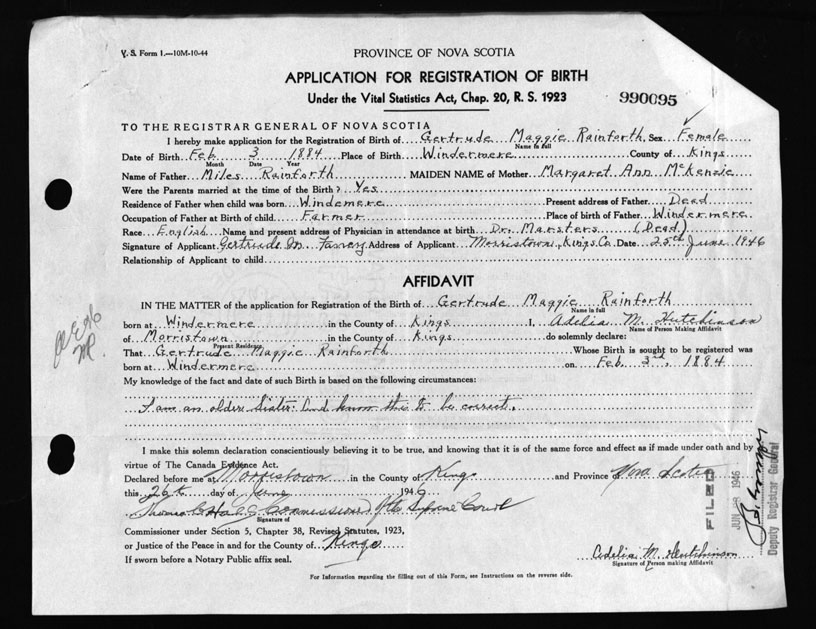 V. S. Form 1.—10M-10-44
PROVINCE OF NOVA SCOTIA
APPLICATION FOR REGISTRATION OF BIRTH
Under the Vital Statistics Act, Chap. 20, R. S. 1923
990095
TO THE REGISTRAR GENERAL OF NOVA SCOTIA
I hereby make application for the Registration of Birth of Gertrude Maggie Rainforth Sex Female
Name in full
Date of Birth Feb 3 1884 Place of Birth Windermere County of Kings
Month Date Year
Name of Father Miles Rainforth MAIDEN NAME of Mother Margaret Ann McKenzie
Were the Parents married at the time of the Birth? Yes
Residence of Father when child was born Windemere Present address of Father Dead
Occupation of Father at Birth of child Farmer Place of birth of Father Windermere
Race English Name and present address of Physician in attendance at birth Dr. Marsters (Dead)
Signature of Applicant Gertrude M. Address of Applicant Morristown, Kings Co. Date 25th June 1946
Relationship of Applicant to child
AFFIDAVIT
IN THE MATTER of the application for Registration of the Birth of Gertrude Maggie Rainforth
Name in full
born at Windermere in the County of Kings I, Adelia M. Hutchinson
Name of Person Making Affidavit
of Morristown in the County of Kings do solemnly declare:
Present Residence
That Gertrude Maggie Rainforth Whose Birth is sought to be registered was
born at Windermere on Feb 3rd, 1884
My knowledge of the fact and date of such Birth is based on the following circumstances:
I am an older Sister and know this to be correct.
I make this solemn declaration conscientiously believing it to be true, and knowing that it is of the same force and effect as if made under oath and by
virtue of The Canada Evidence Act.
Declared before me at Morristown in the County of Kings and Province of Nova Scotia
this 26th day of June 1946
Thomas Commissioner of the Court
Signature of
Commissioner under Section 5, Chapter 38, Revised Statutes, 1923,
or Justice of the Peace in and for the County of Kings
If sworn before a Notary Public affix seal.
Adelia M. Hutchinson
Signature of Person making Affidavit
For Information regarding the filling out of this Form, see Instructions on the reverse side.
FILED
JUN 28 1946
Deputy Registrar General